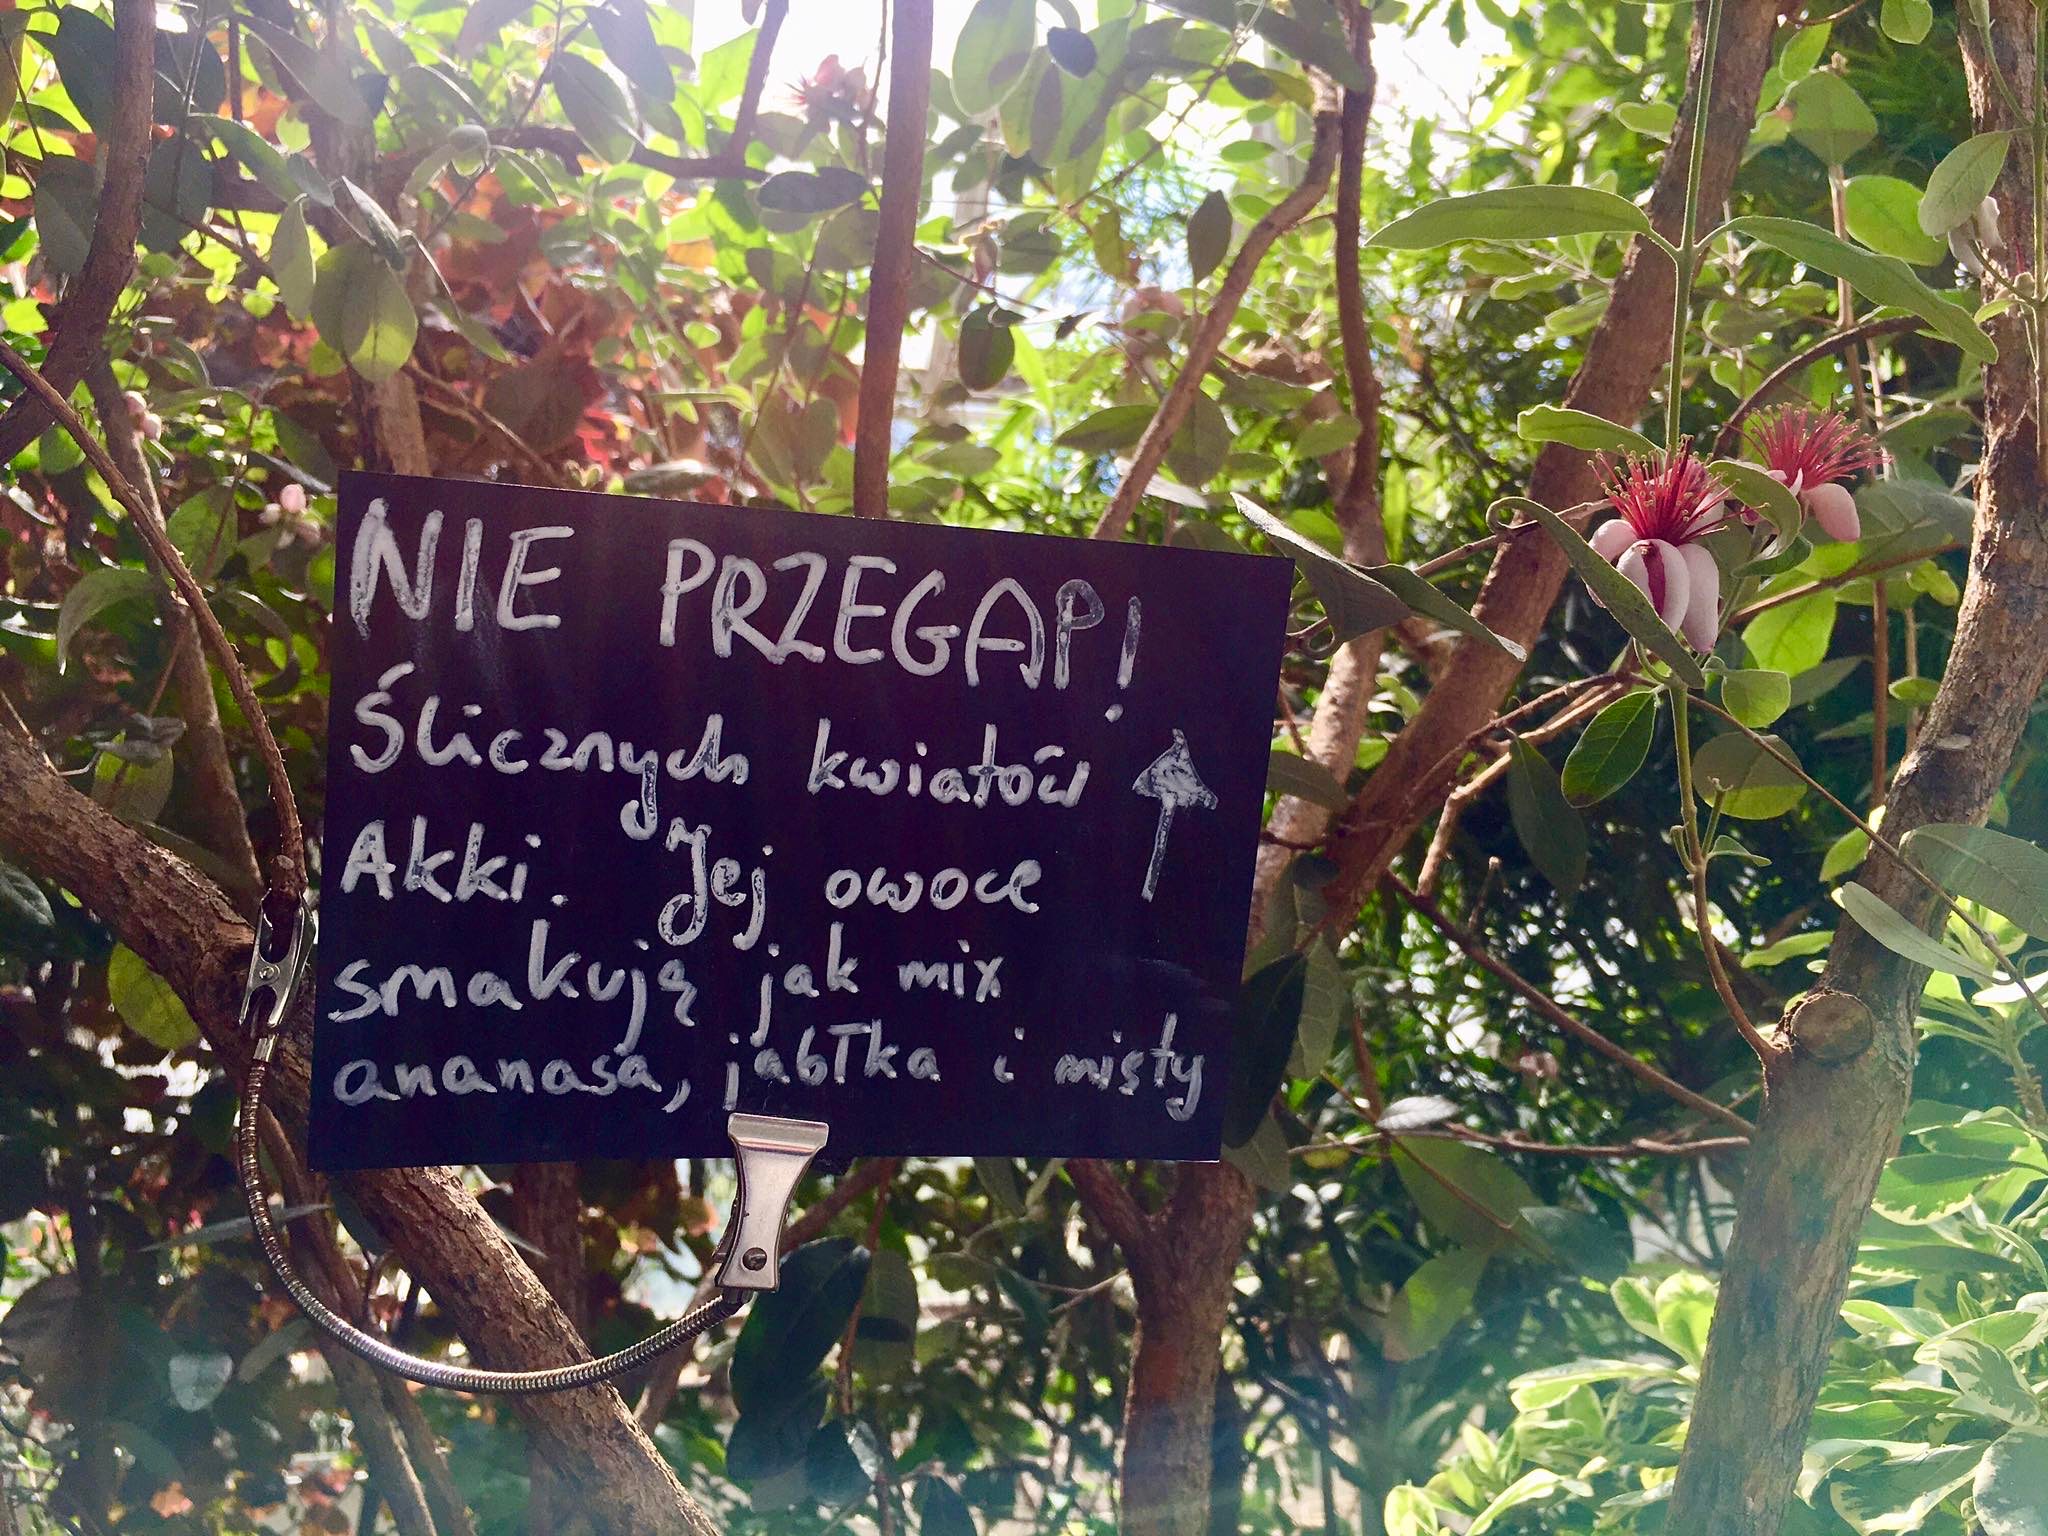 NIE PRZEGAP!
Ślicznych kwiatów
Akki. Jej owoce
smakują jak mix
ananasa, jabłka i mięty